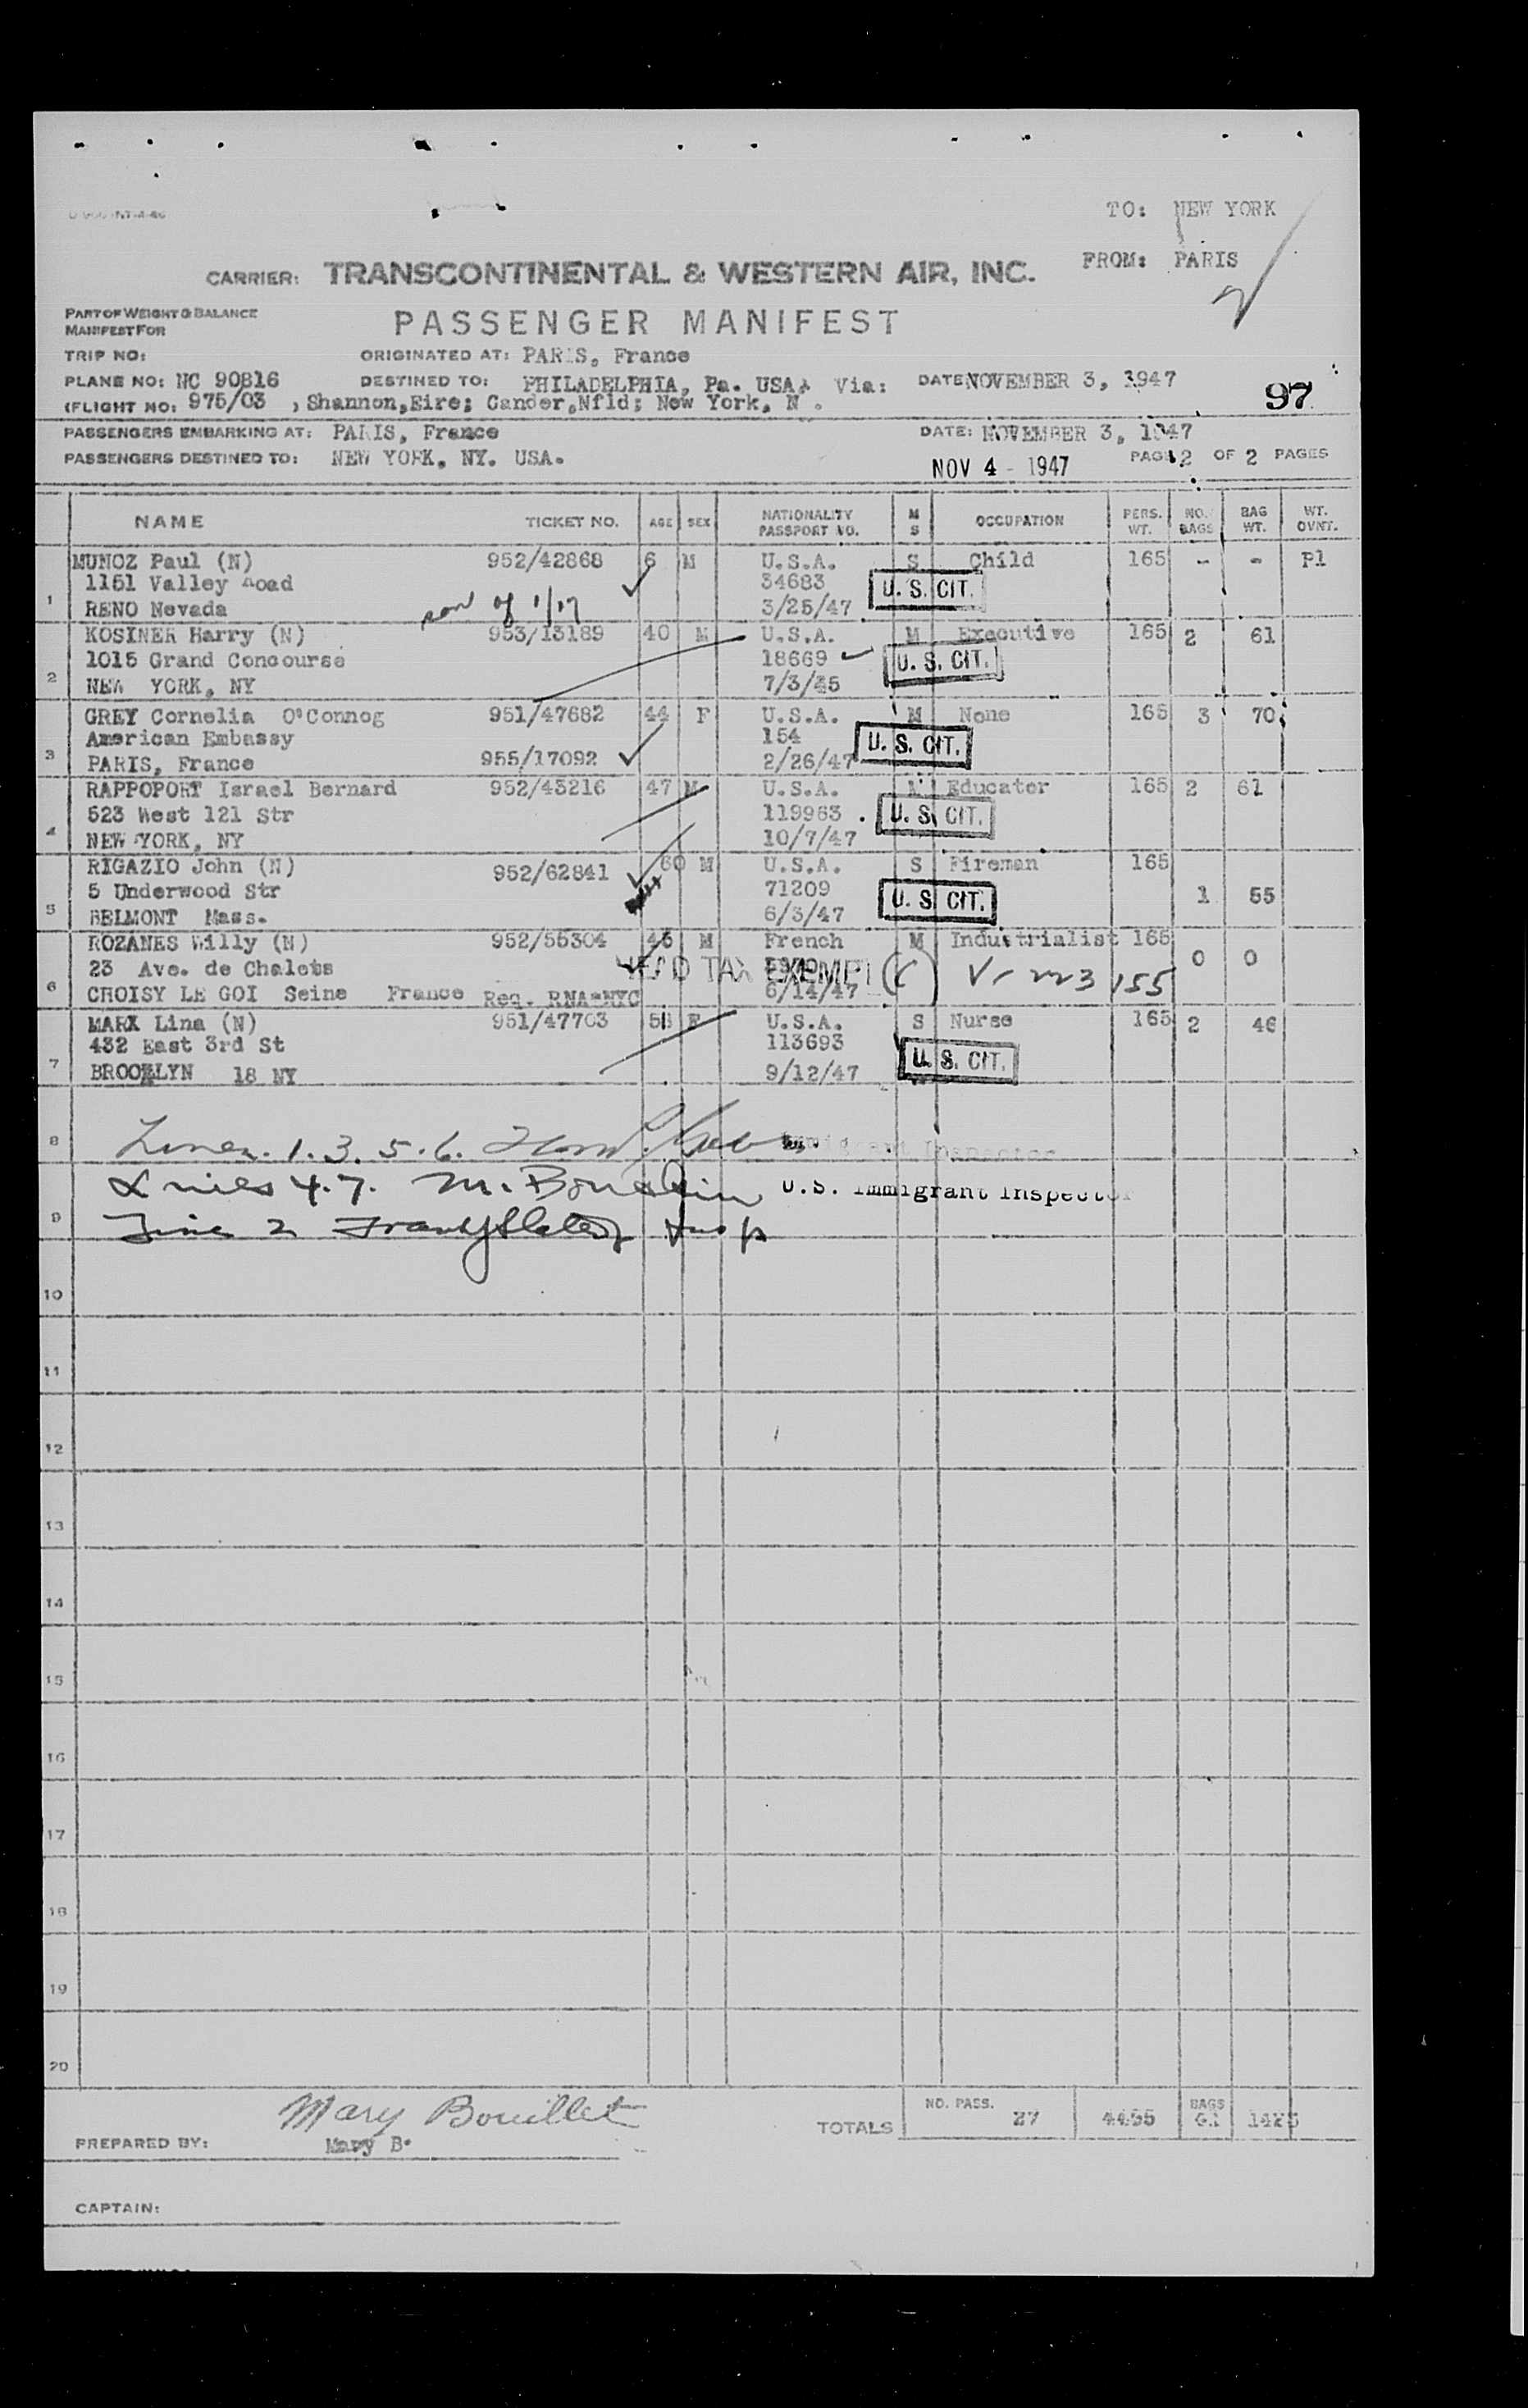 TO: NEW YORK
FROM: PARIS
CARRIER: TRANSCONTINENTAL & WESTERN AIR, INC.
PART OF WEIGHT & BALANCE
MANIFEST FOR
PASSENGER MANIFEST
TRIP NO: ORIGINATED AT: PARIS, France
PLANE NO: NC 90816 DESTINED TO: PHILADELPHIA, Pa. USA, Via: DATE NOVEMBER 3, 1947
97
(FLIGHT NO: 975/03 , Shannon,Eire; Gander,Nfld; New York, N .
PASSENGERS EMBARKING AT: PARIS, France DATE: NOVEMBER 3, 1947
PASSENGERS DESTINED TO: NEW YORK, NY. USA. NOV 4 - 1947 PAGE 2 OF 2 PAGES
NAME TICKET NO. AGE SEX NATIONALITY PASSPORT NO. M S OCCUPATION PERS. WT. NO. BAGS BAG WT. WT. OVNT.
MUNOZ Paul (N) 952/42868 6 M U.S.A. S Child 165 - - P1
1151 Valley Road 34683 U. S. CIT.
1 RENO Nevada son of 1/17 3/25/47
KOSINER Harry (N) 953/13189 40 M U.S.A. M Executive 165 2 61
1015 Grand Concourse 18669 U. S. CIT.
2 NEW YORK, NY 7/3/45
GREY Cornelia O'Connog 951/47682 44 F U.S.A. M None 165 3 70
American Embassy 154 U. S. CIT.
3 PARIS, France 955/17092 2/26/47
RAPPOPORT Israel Bernard 952/43216 47 M U.S.A. M Educater 165 2 61
523 West 121 Str 119963 U. S. CIT.
4 NEW YORK, NY 10/7/47
RIGAZIO John (N) 952/62841 60 M U.S.A. S Fireman 165
5 Underwood Str 71209 U. S. CIT. 1 55
5 BELMONT Mass. 6/3/47
ROZANES Willy (N) 952/55304 45 M French M Industrialist 165
23 Ave. de Chalets HEAD TAX EXEMPT (C) 0 0
6 CHOISY LE GOI Seine France Req. RNA=NYC 6/14/47 155
MARX Lina (N) 951/47703 58 F U.S.A. S Nurse 165 2 46
432 East 3rd St 113693 U. S. CIT.
7 BROOKLYN 18 NY 9/12/47
8 Lines. 1. 3. 5. 6. Immigrant Inspector
Lines 4. 7. M. U.S. Immigrant Inspector
9 Line 2 Insp
10
11
12
13
14
15
16
17
18
19
20
Mary Bouillet
PREPARED BY: Mary B.
TOTALS NO. PASS. 27 4455 BAGS 61
CAPTAIN: